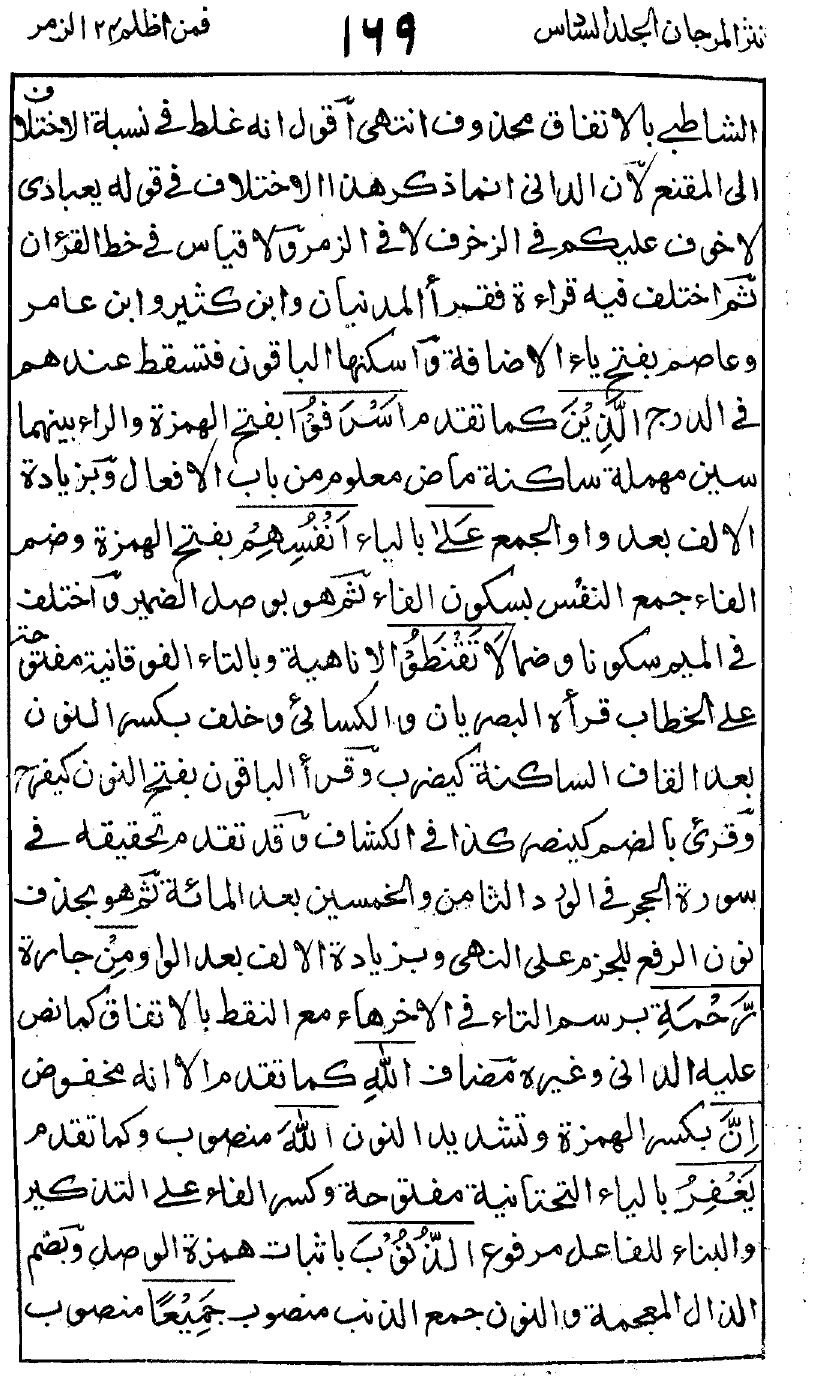 نثر المرجان الجلد السادس ١٦٩ فمن اظلم ٢٤ الزمر
الشاطبي بالاتفاق محذوف انتهى أقول انه غلط في نسبة الاختلاف
الى المقنع لأن الداني انما ذكر هذا الاختلاف في قوله يعبادى
لا خوف عليكم في الزخرف لا في الزمر ولا قياس في خط القرءان
ثم اختلف فيه قراءة فقرأ المدنيان وابن كثير وابن عامر
وعاصم بفتح ياء الاضافة واسكنها الباقون فتسقط عندهم
في الدرج الَّذِيْنَ كما تقدم اَسْرَفُوْا بفتح الهمزة والراء بينهما
سين مهملة ساكنة ماض معلوم من باب الافعال وبزيادة
الالف بعد واو الجمع عَلٰى بالياء اَنْفُسِهِمْ بفتح الهمزة وضم
الفاء جمع النفْس بسكون الفاء ثم هو بوصل الضمير واختلف
في الميم سكونا وضما لَا تَقْنَطُوْا لا ناهية وبالتاء الفوقانية مفتوحة
على الخطاب قرأه البصريان والكسائي وخلف بكسر النون
بعد القاف الساكنة كيضرب وقرأ الباقون بفتح النون كيفرح
وقرئ بالضم كينصر كذا في الكشاف وقد تقدم تحقيقه في
سورة الحجر في الورد الثامن والخمسين بعد المائة ثم هو بحذف
نون الرفع للجزم على النهى وبزيادة الالف بعد الواو مِنْ جارة
رَّحْمَةِ برسم التاء في الاخر هاء مع النقط بالاتفاق كما نص
عليه الداني وغيره مضاف اللهِ كما تقدم الا انه مخفوض
اِنَّ بكسر الهمزة وتشديد النون اللهَ منصوب وكما تقدم
يَغْفِرُ بالياء التحتانية مفتوحة وكسر الفاء على التذكير
والبناء للفاعل مرفوع الذُّنُوْبَ باثبات همزة الوصل وبضم
الذال المعجمة والنون جمع الذنب منصوب جَمِيْعًا منصوب